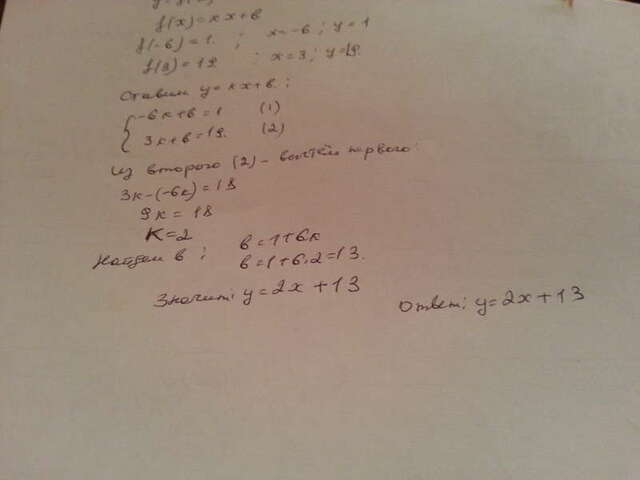 f(x)=kx+в
f(-6)=1. ; x=-6; y=1
f(3)=19. ; x=3; y=19.
Ставим y=kx+в:
{-6к+в=1 (1)
3к+в=19. (2)
Из второго (2) - вычтем первого:
3к-(-6к)=18
9к=18
К=2
Найдем в: в=1+6к
в=1+6·2=13.
Значит: y=2x+13
Ответ: y=2x+13